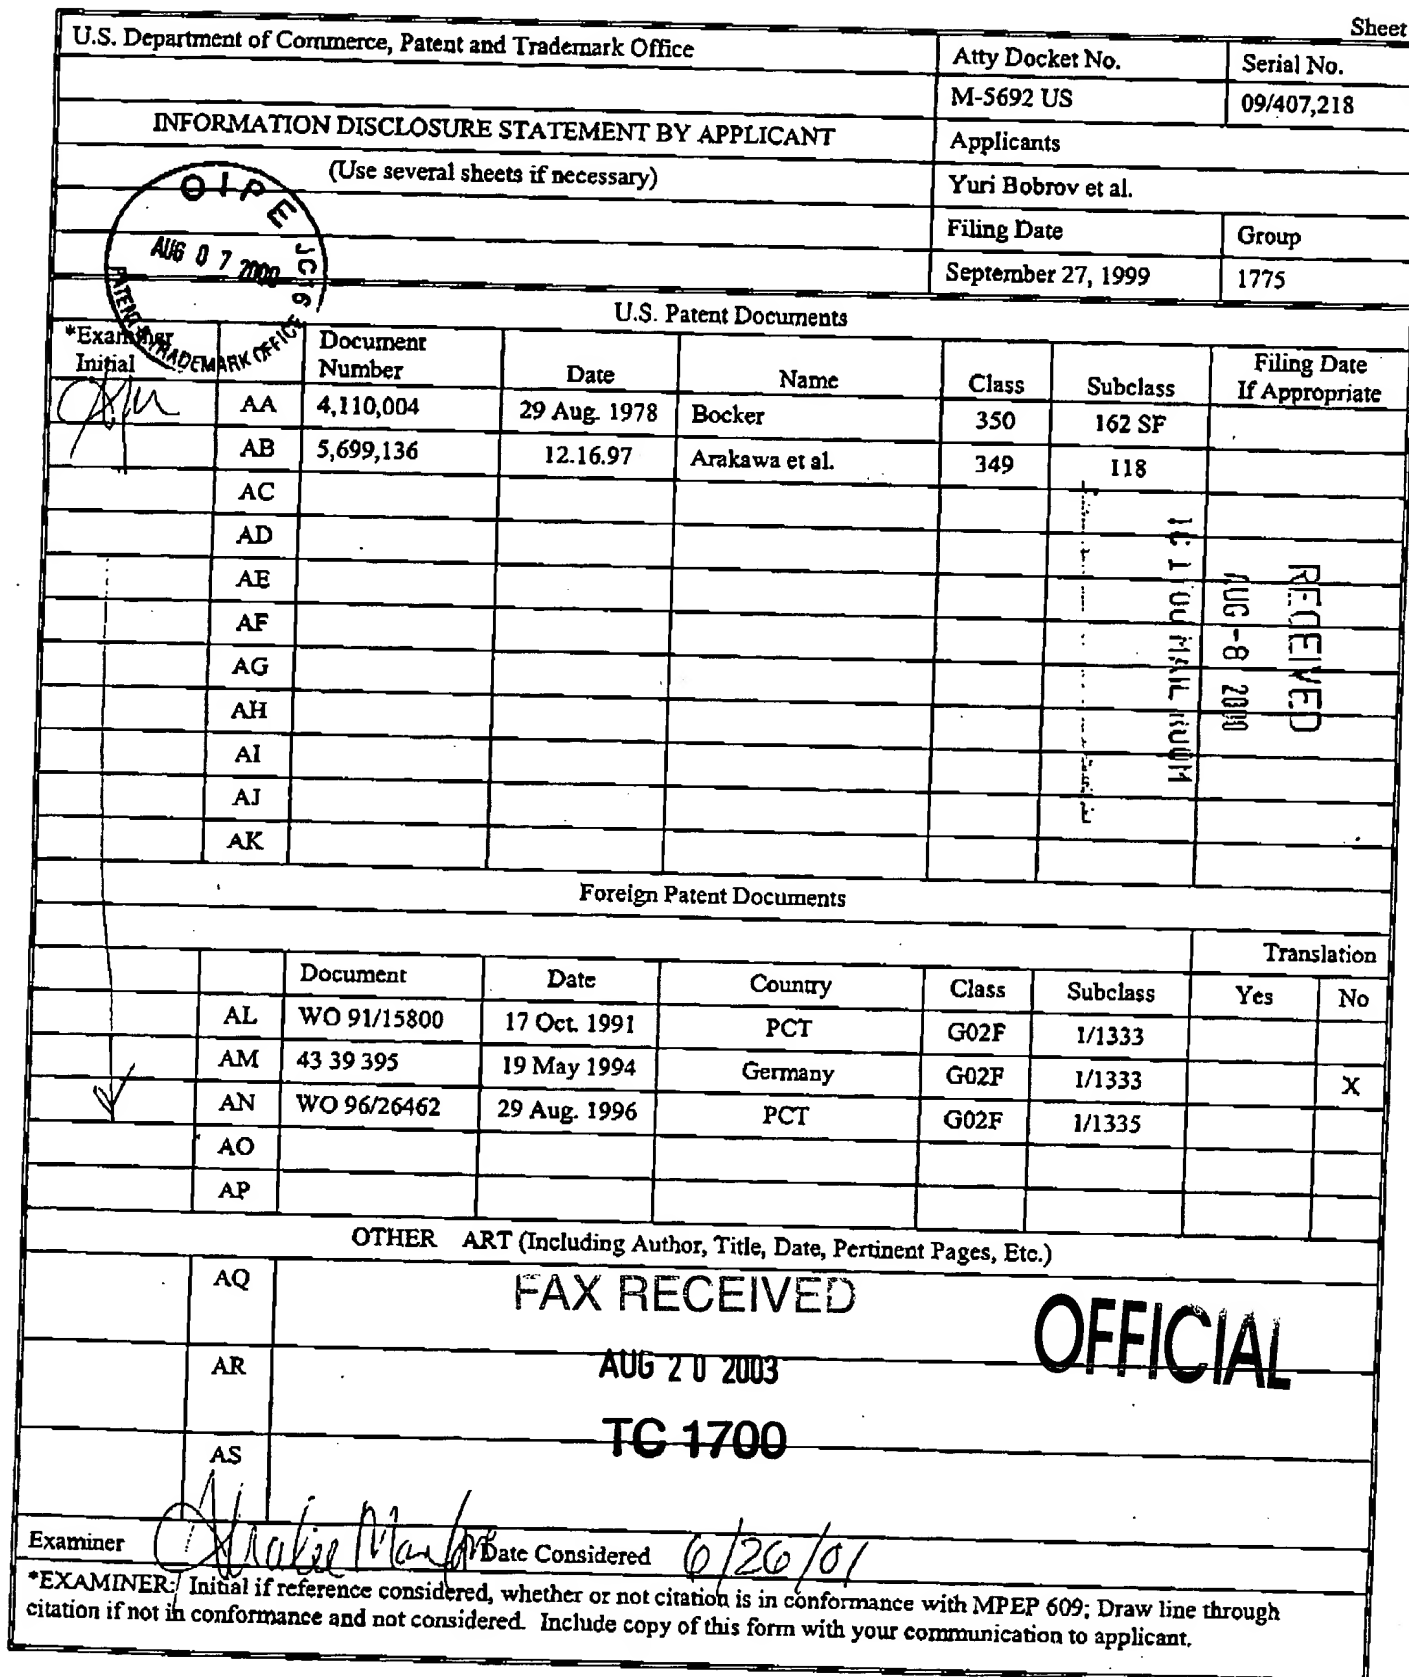 Sheet
U.S. Department of Commerce, Patent and Trademark Office
Atty Docket No.
Serial No.
M-5692 US
09/407,218
INFORMATION DISCLOSURE STATEMENT BY APPLICANT
Applicants
(Use several sheets if necessary)
Yuri Bobrov et al.
Filing Date
Group
September 27, 1999
1775
OIPE JC16
AUG 07 2000
PATENT & TRADEMARK OFFICE
U.S. Patent Documents
*Examiner Initial
Document Number
Date
Name
Class
Subclass
Filing Date If Appropriate
AA 4,110,004 29 Aug. 1978 Bocker 350 162 SF
AB 5,699,136 12.16.97 Arakawa et al. 349 118
AC
AD
AE
AF
AG
AH
AI
AJ
AK
RECEIVED
AUG -8 2000
TC 1700 MAIL ROOM
Foreign Patent Documents
Translation
Document Date Country Class Subclass Yes No
AL WO 91/15800 17 Oct. 1991 PCT G02F 1/1333
AM 43 39 395 19 May 1994 Germany G02F 1/1333 X
AN WO 96/26462 29 Aug. 1996 PCT G02F 1/1335
AO
AP
OTHER ART (Including Author, Title, Date, Pertinent Pages, Etc.)
AQ
FAX RECEIVED
OFFICIAL
AR
AUG 20 2003
TC 1700
AS
Examiner
Date Considered 6/26/01
*EXAMINER: Initial if reference considered, whether or not citation is in conformance with MPEP 609; Draw line through
citation if not in conformance and not considered. Include copy of this form with your communication to applicant.